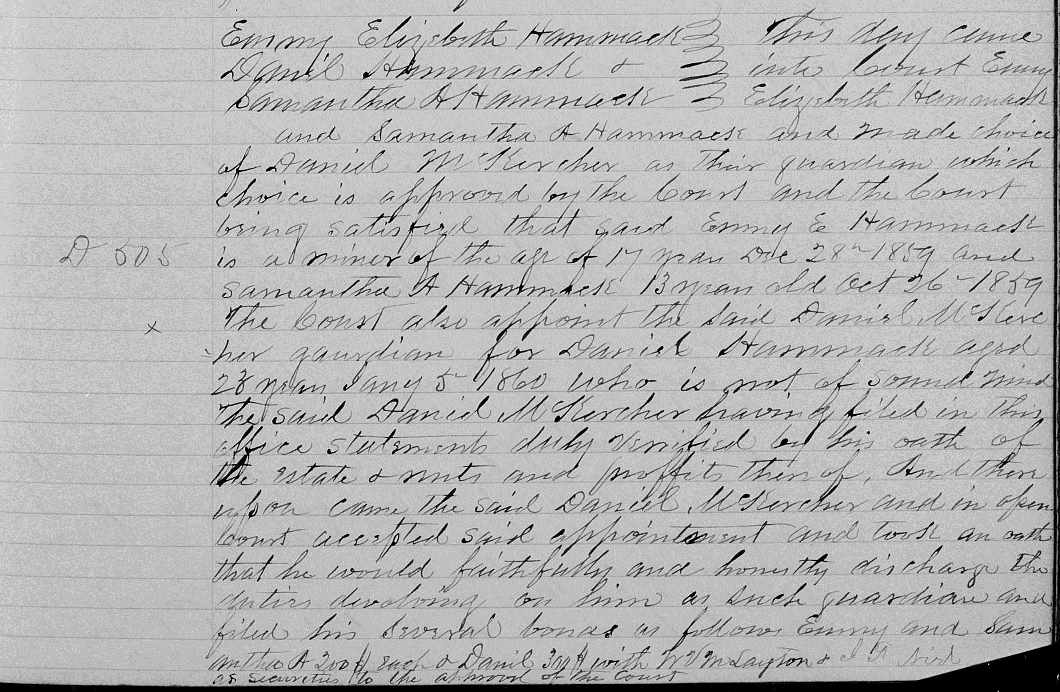 Emmy Elizebeth Hammack } This day came
Daniel Hammack & } into Court Emmy
Samantha A Hammack } Elizebeth Hammack
and Samantha A Hammack and made choice
of Daniel McKercher as their guardian which
choice is approved by the Court and the Court
being satisfied that said Emmy E Hammack
D 505
is a minor of the age of 17 years Dec 28th 1859 and
Samantha A Hammack 13 years old Oct 26th 1859
x
The Court also appoint the said Daniel McKerc
her gaurdian for Daniel Hammack aged
23 years Jany 5 1860 who is not of sound mind
The said Daniel McKercher having filed in this
office statements duly verified by his oath of
the estate & rents and proffits thereof, And there
upon came the said Daniel McKercher and in open
Court accepted said appointment and took an oath
that he would faithfully and honestly discharge the
duties devolving on him as such guardian and
filed his several bonds as follows Emmy and Sam
antha A 200$ each & Daniel with Layton &
as securities to the approval of the Court